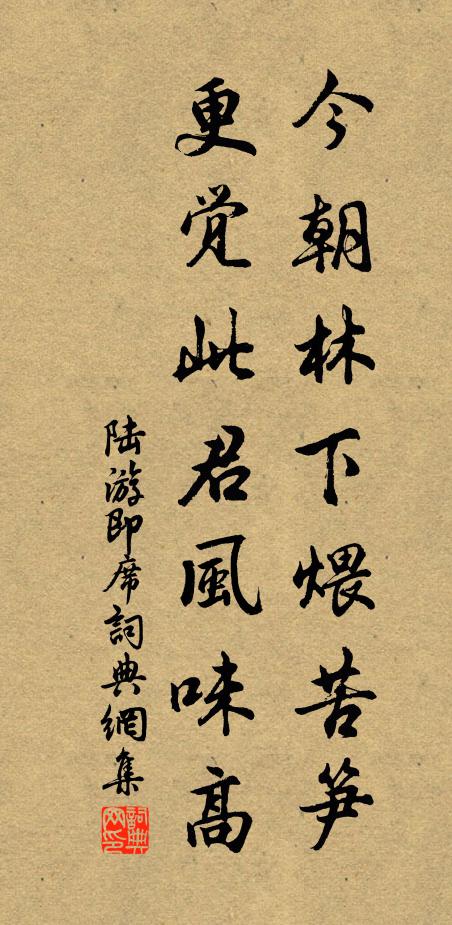 今朝林下煨苦笋
更觉此君風味高
陆游即席詞典網集
詞典網印